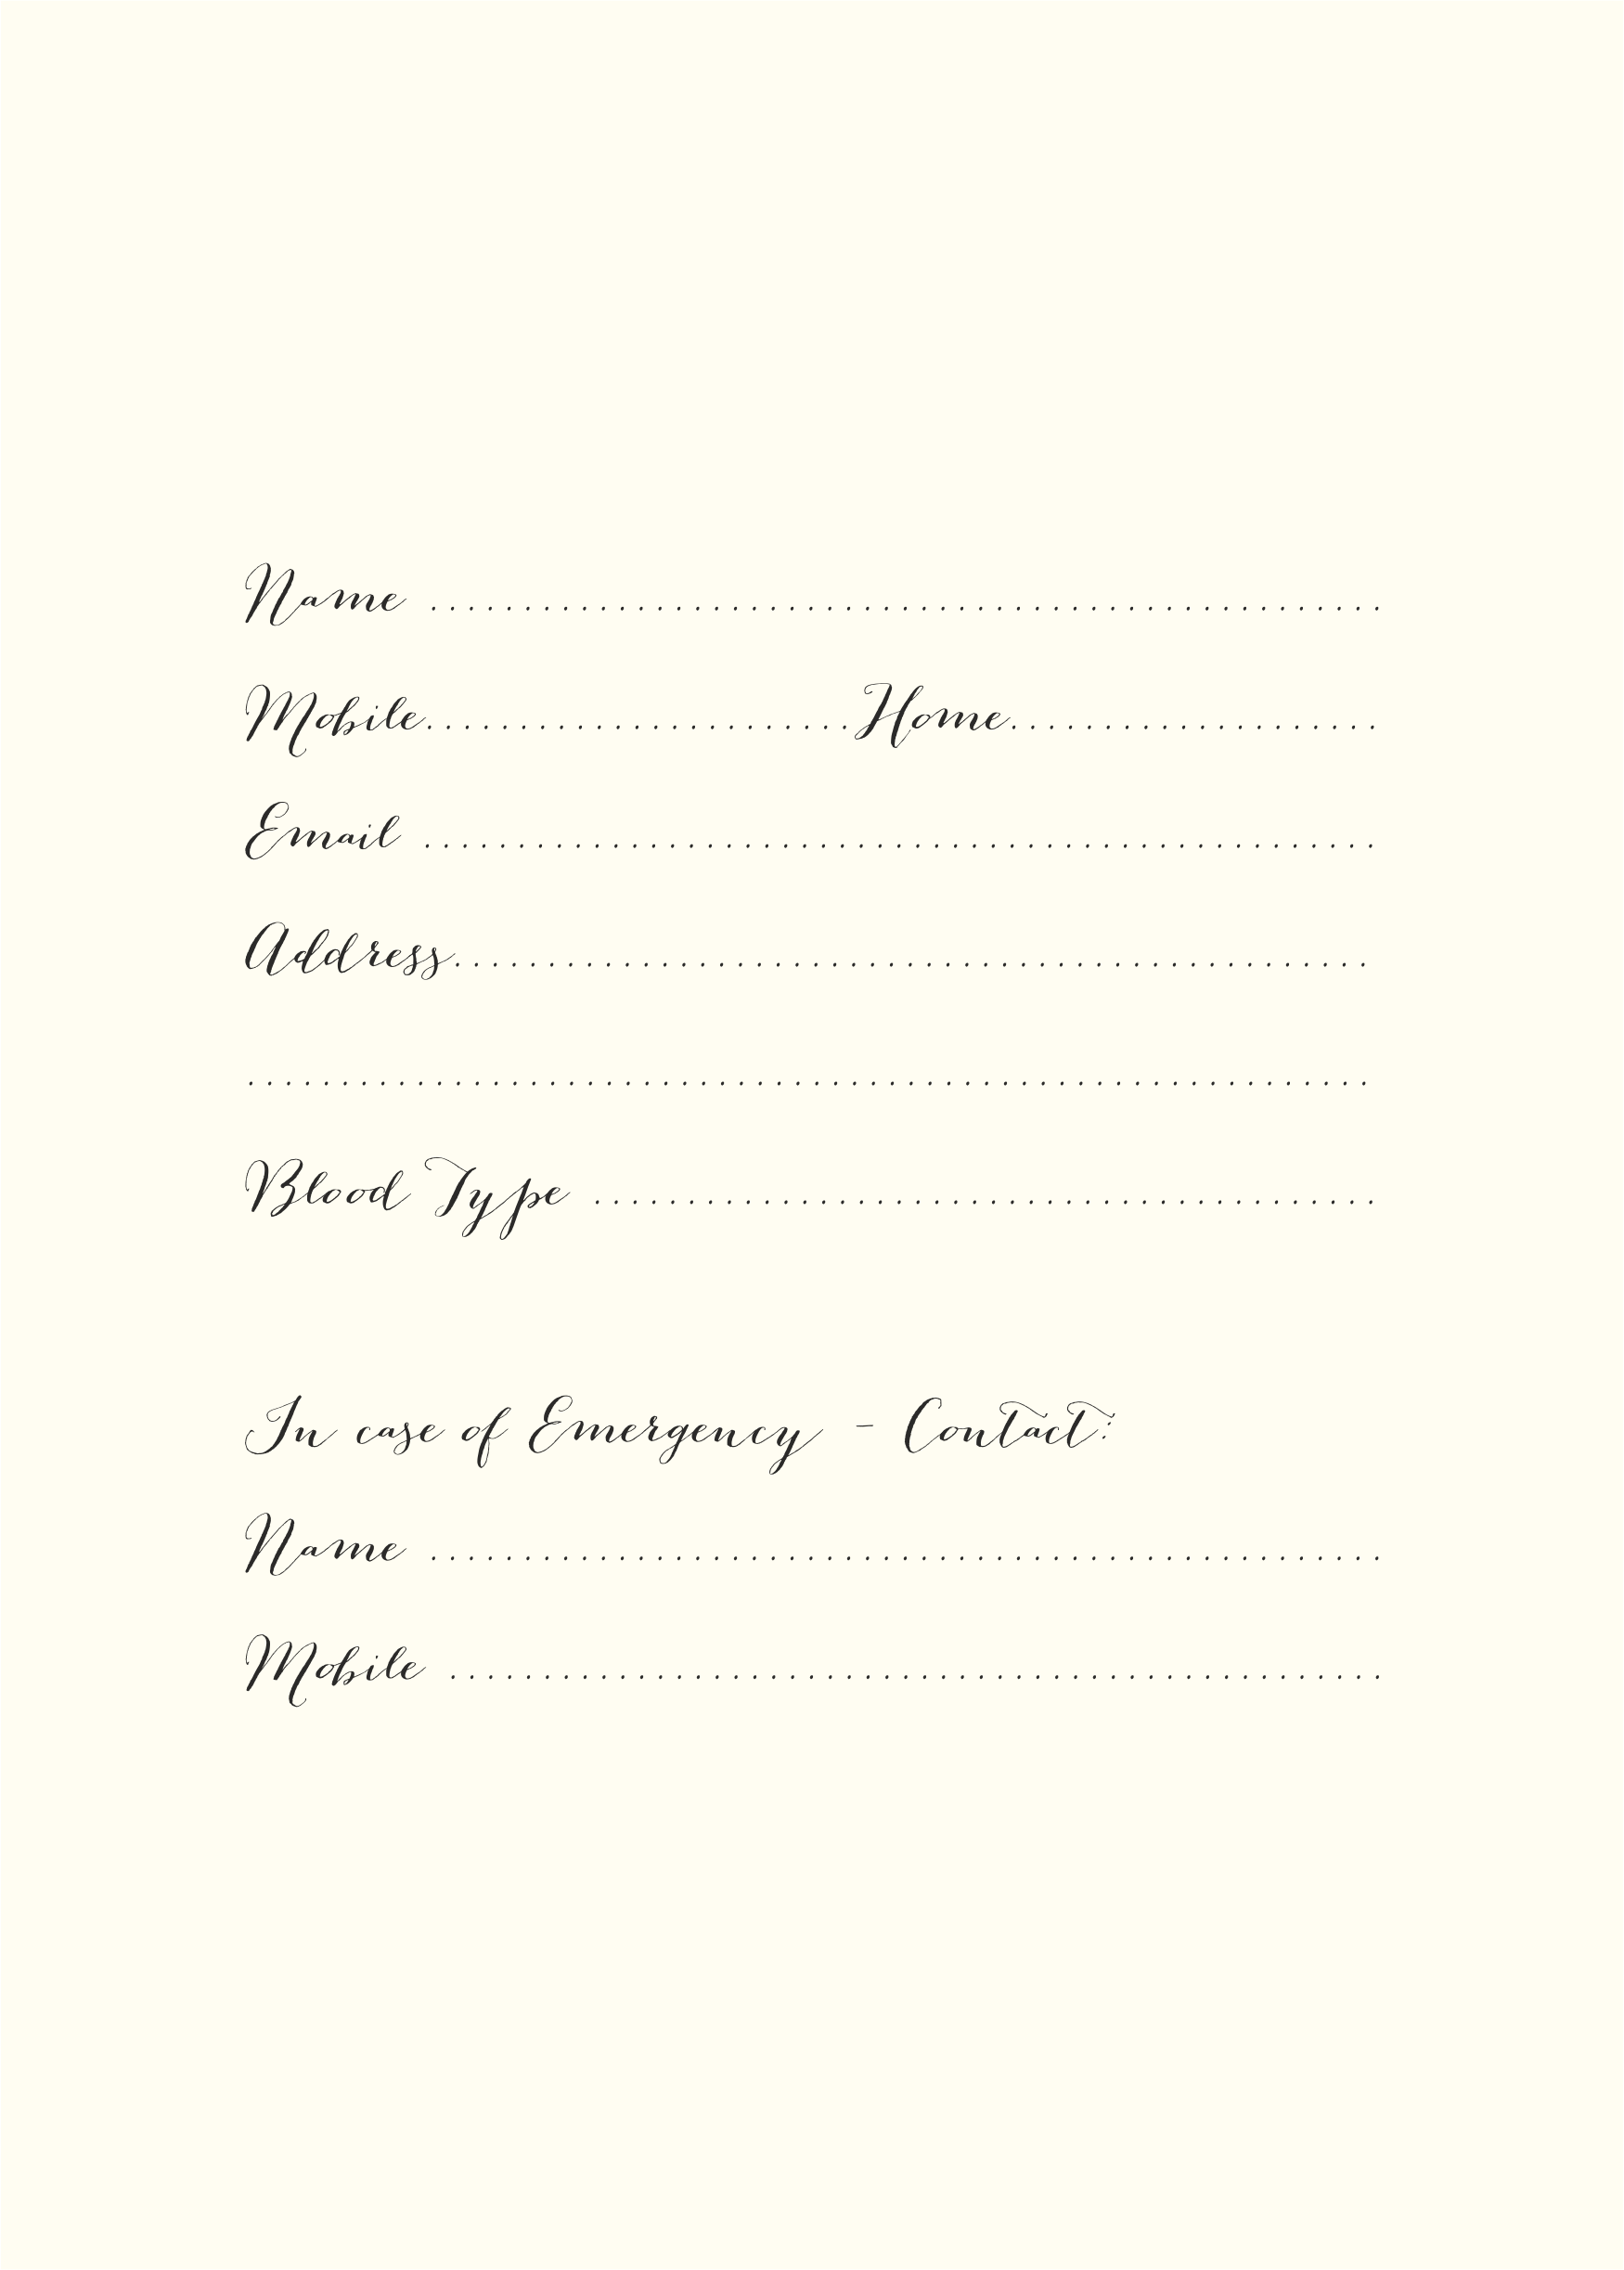 Name ..................................................
Mobile.......................Home....................
Email ...................................................
Address.................................................
............................................................
Blood Type ..........................................
In case of Emergency - Contact:
Name ..................................................
Mobile ..................................................